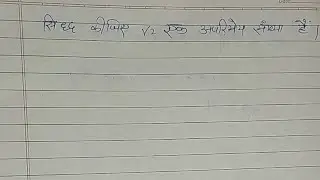 सिध्द कीजिए √2 एक अपरिमेय संख्या हैं।